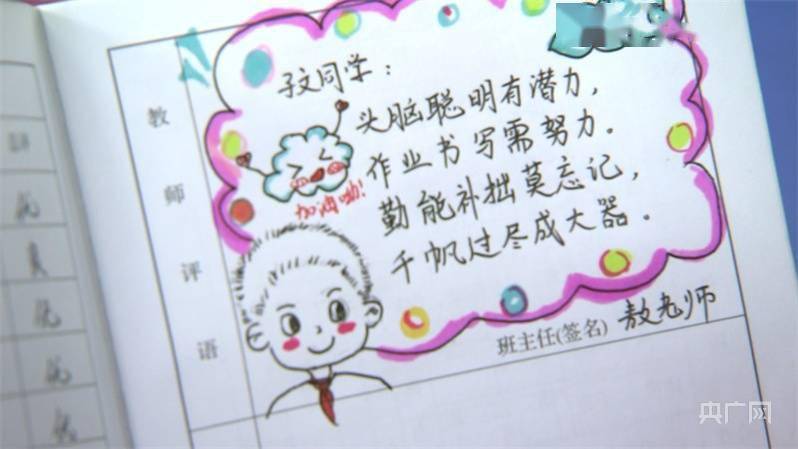 教师评语
孜同学：
头脑聪明有潜力，
作业书写需努力。
勤能补拙莫忘记，
千帆过尽成大器。
加油呦！
班主任(签名) 敖老师
央广网